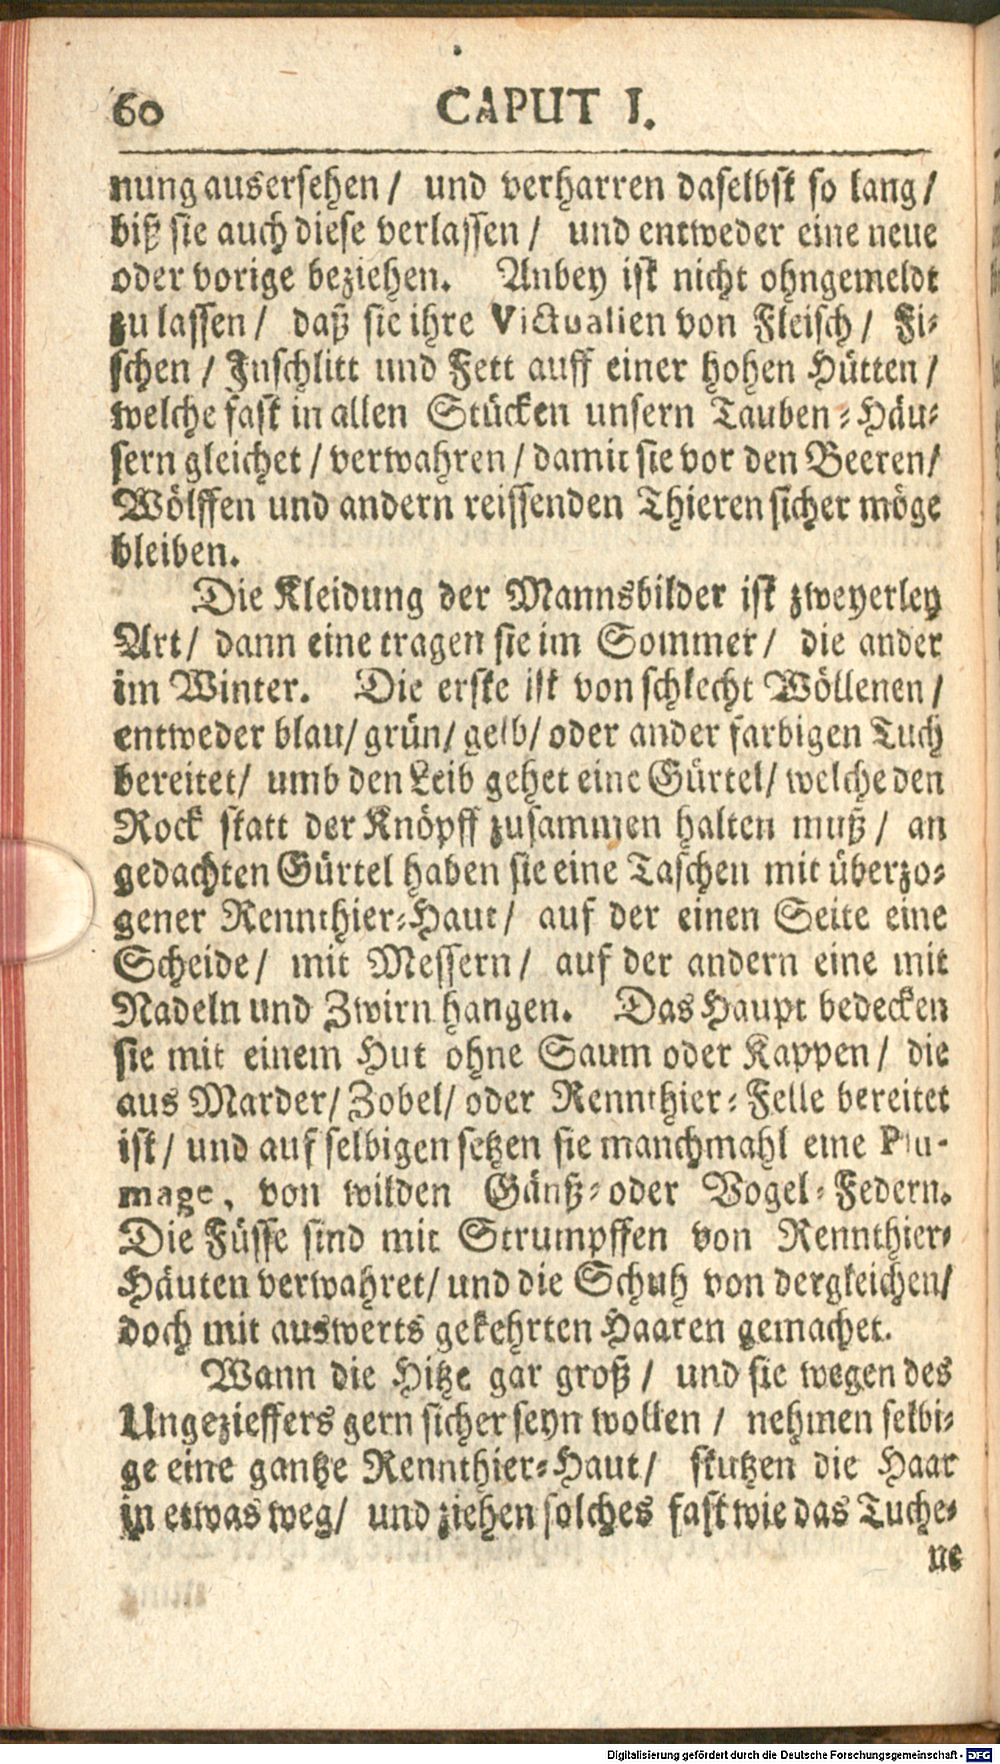 60 CAPUT I.
nung ausersehen / und verharren daselbst so lang /
biß sie auch diese verlassen / und entweder eine neue
oder vorige beziehen. Anbey ist nicht ohngemeldt
zu lassen / daß sie ihre Victualien von Fleisch / Fi-
schen / Inschlitt und Fett auff einer hohen Hütten /
welche fast in allen Stücken unsern Tauben-Häu-
sern gleichet / verwahren / damit sie vor den Beeren /
Wölffen und andern reissenden Thieren sicher möge
bleiben.
Die Kleidung der Mannsbilder ist zweyerley
Art / dann eine tragen sie im Sommer / die ander
im Winter. Die erste ist von schlecht Wöllenen /
entweder blau / grün / gelb / oder ander farbigen Tuch
bereitet / umb den Leib gehet eine Gürtel / welche den
Rock statt der Knöpff zusammen halten muß / an
gedachten Gürtel haben sie eine Taschen mit überzo-
gener Rennthier-Haut / auf der einen Seite eine
Scheide / mit Messern / auf der andern eine mit
Nadeln und Zwirn hangen. Das Haupt bedecken
sie mit einem Hut ohne Saum oder Kappen / die
aus Marder / Zobel / oder Rennthier-Felle bereitet
ist / und auf selbigen setzen sie manchmahl eine Plu-
mage, von wilden Gänß-oder Vogel-Federn.
Die Füsse sind mit Strumpffen von Rennthier-
Häuten verwahret / und die Schuh von dergleichen /
doch mit auswerts gekehrten Haaren gemachet.
Wann die Hitze gar groß / und sie wegen des
Ungezieffers gern sicher seyn wollen / nehmen selbi-
ge eine gantze Rennthier-Haut / stutzen die Haar
in etwas weg / und ziehen solches fast wie das Tuche-
ne
Digitalisierung gefördert durch die Deutsche Forschungsgemeinschaft - DFG